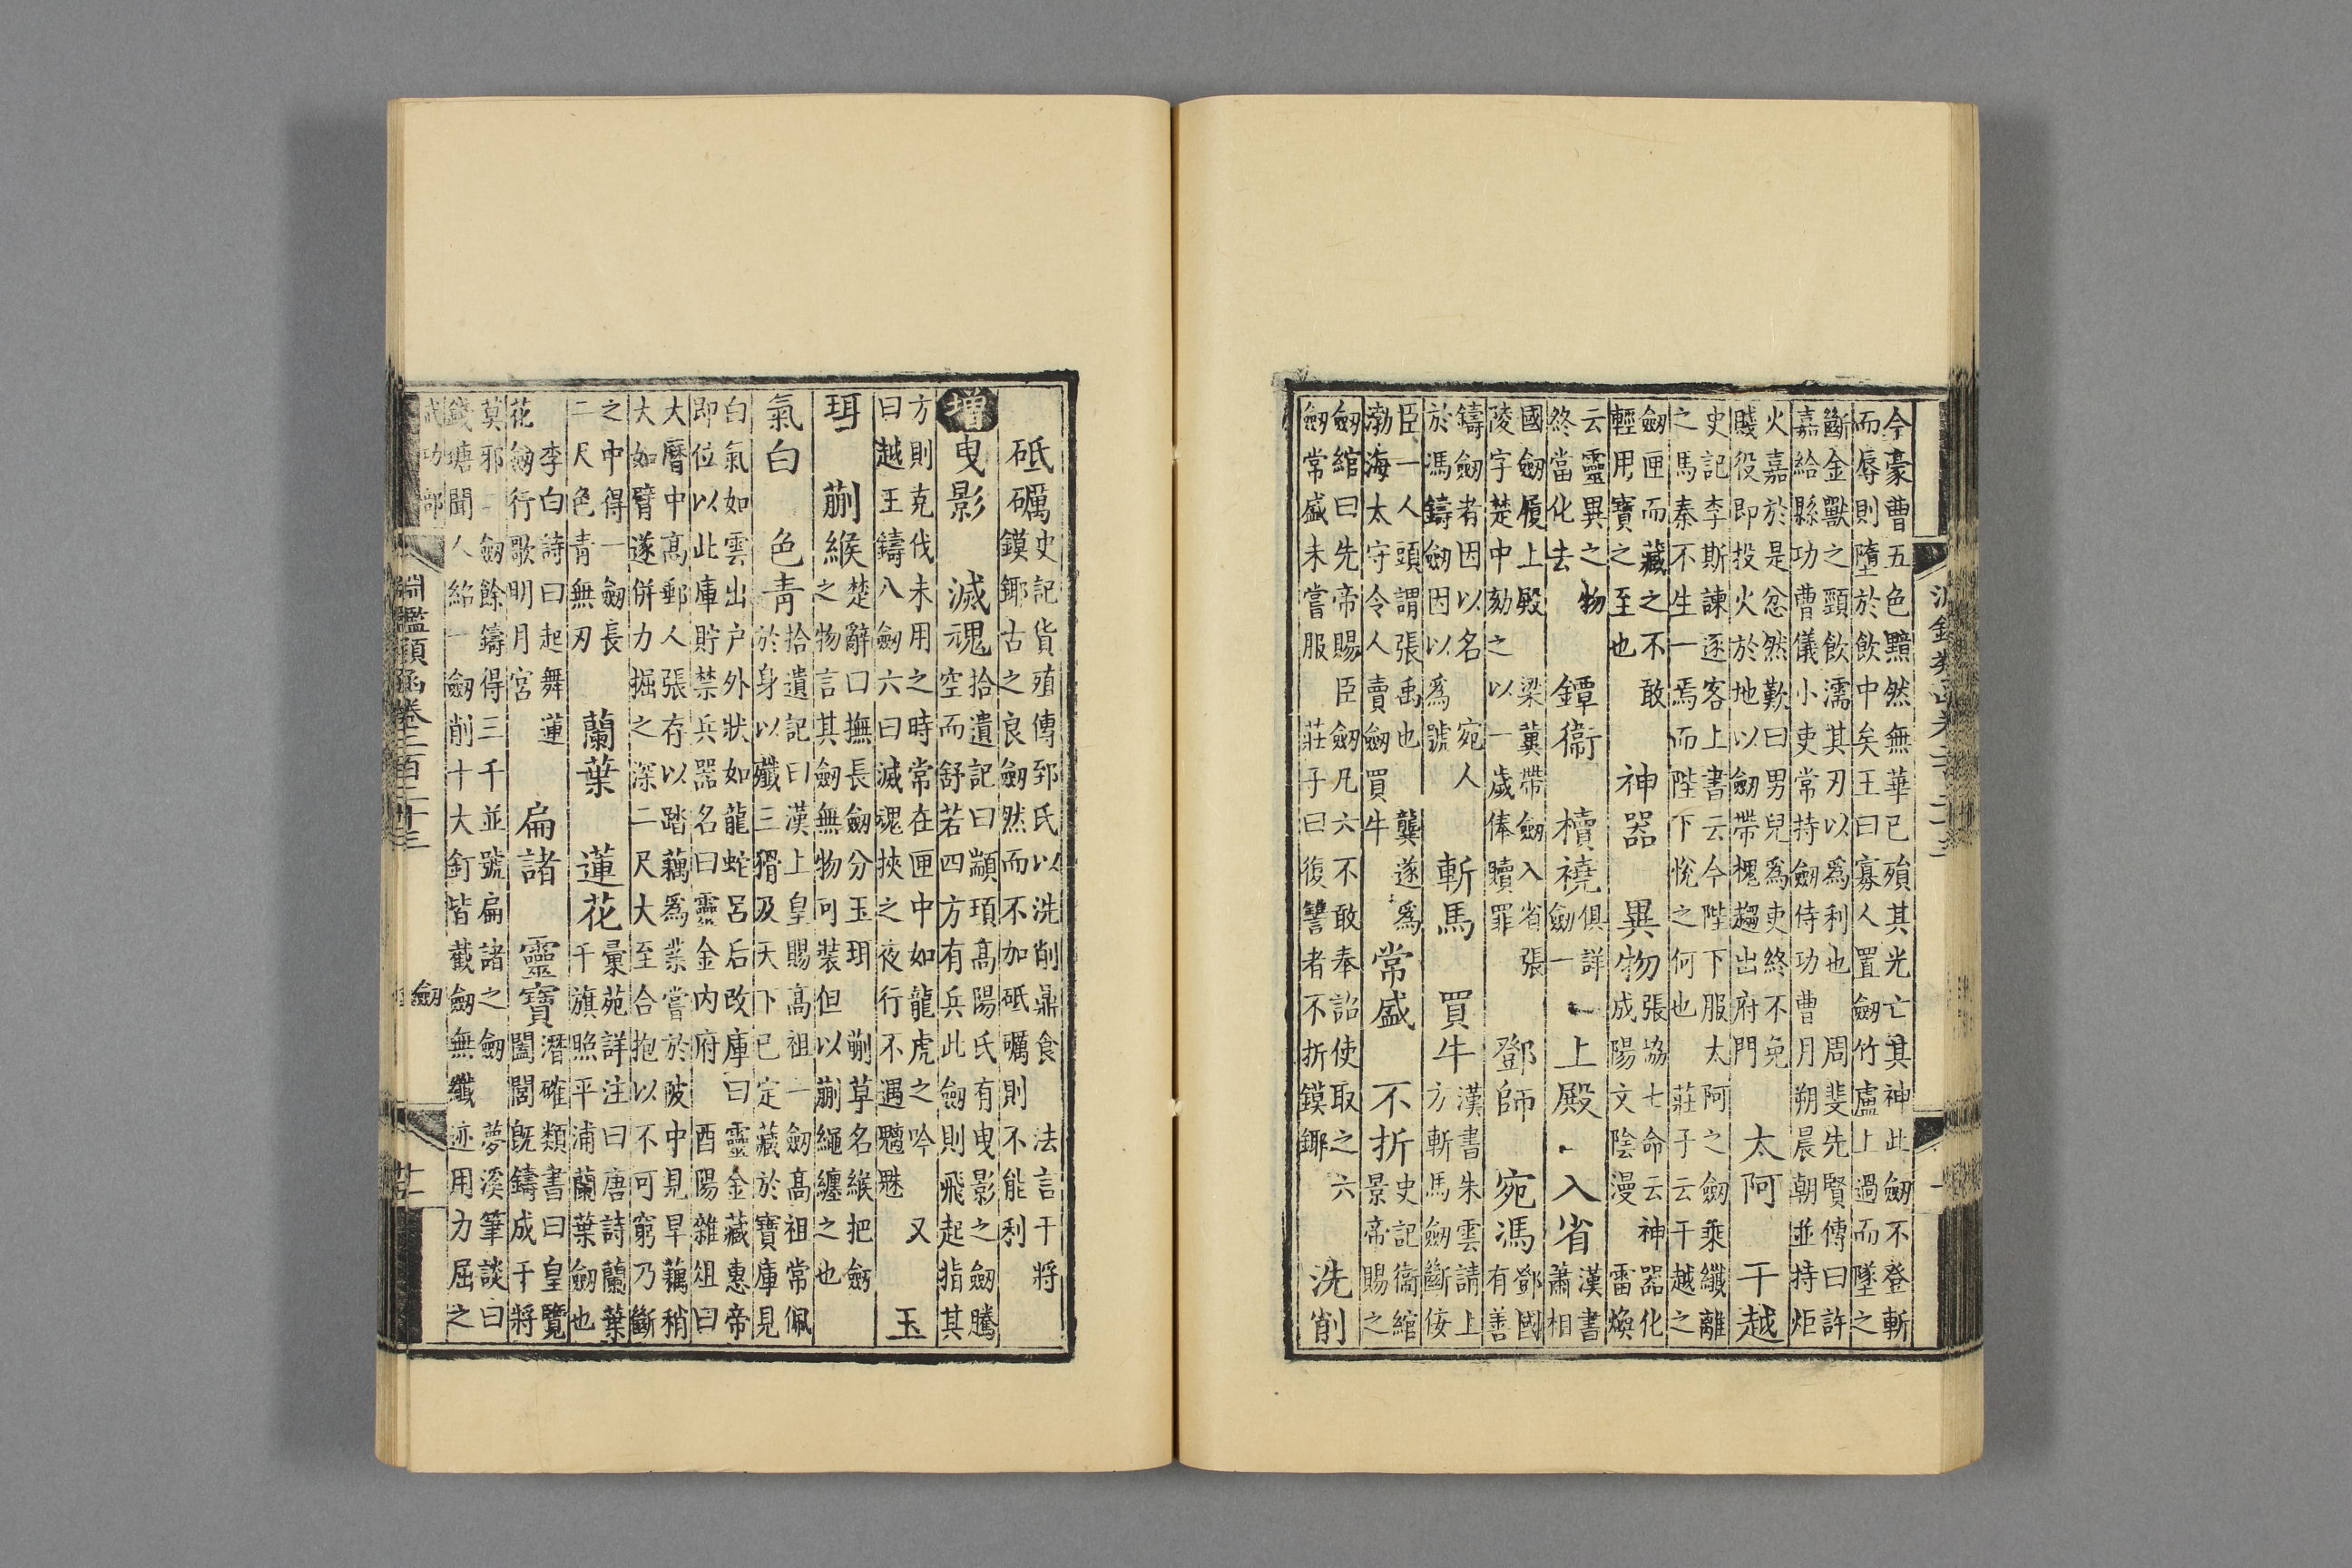 今豪曹五色黯然無華已殞其光亡其神此劔不登斬
而辱則墮於飲中矣王曰寡人置劔竹盧上過而墜之
斷金獸之頸飲濡其刃以爲利也 周斐先賢傳曰許
嘉給縣功曹儀小吏常持劔侍功曹月朔晨朝並持炬
火嘉於是忿然歎曰男兒爲吏終不免
賤役即投火於地以劔帶槐趨出府門
太阿 干越
史記李斯諫逐客上書云今陛下服太阿之劔乘纖離
之馬秦不生一焉而陛下悅之何也 莊子云干越之
劔匣而藏之不敢
輕用寶之至也
神器 異物
張協七命云神器化
成陽文陰漫 雷煥
云靈異之物
終當化去
鐔衞 櫝襓
俱詳
劔一
上殿 入省
漢書
蕭相
國劔履上殿 梁冀帶劔入省張
陵字楚中劾之以一歲俸贖罪
鄧師 宛馮
鄧國
有善
鑄劔者因以名 宛人
於馮鑄劔因以爲號
斬馬 買牛
漢書朱雲請上
方斬馬劔斷佞
臣一人頭謂張禹也 龔遂爲
渤海太守令人賣劔買牛
常盛 不折
史記衞綰
景帝賜之
劔綰曰先帝賜臣劔凡六不敢奉詔使取之六
劔常盛未嘗服 莊子曰復讐者不折鏌鎁
洗削
砥礪
史記貨殖傳郅氏以洗削鼎食 法言干將
鏌鎁古之良劔然而不加砥礪則不能利
增 曳影 滅魂
拾遺記曰顓頊高陽氏有曳影之劔騰
空而舒若四方有兵此劔則飛起指其
方則克伐未用之時常在匣中如龍虎之吟 又
曰越王鑄八劔六曰滅魂挾之夜行不遇魑魅
玉
珥 蒯緱
楚辭曰撫長劔分玉珥 蒯草名緱把劔
之物言其劔無物可裝但以蒯繩纏之也
氣白 色靑
拾遺記曰漢上皇賜高祖一劔高祖常佩
於身以殲三猾及天下已定藏於寶庫見
白氣如雲出戶外狀如龍蛇呂后改庫曰靈金藏惠帝
即位以此庫貯禁兵器名曰靈金內府 酉陽雜俎曰
大曆中高郵人張存以踏藕爲業嘗於陂中見旱藕稍
大如臂遂併力掘之深二尺大至合抱以不可窮乃斷
之中得一劔長
二尺色靑無刃
蘭葉 蓮花
彚苑詳注曰唐詩蘭葉
千旗照平浦蘭葉劔也
李白詩曰起舞蓮
花劔行歌明月宮
扁諸 靈寶
潛確類書曰皇覽
闔閭旣鑄成干將
莫邪二劔餘鑄得三千並號扁諸之劔 夢溪筆談曰
錢塘聞人紹一劔削十大釘皆截劔無纖迹用力屈之
武功部
淵鑑類函卷二百二十三
劔